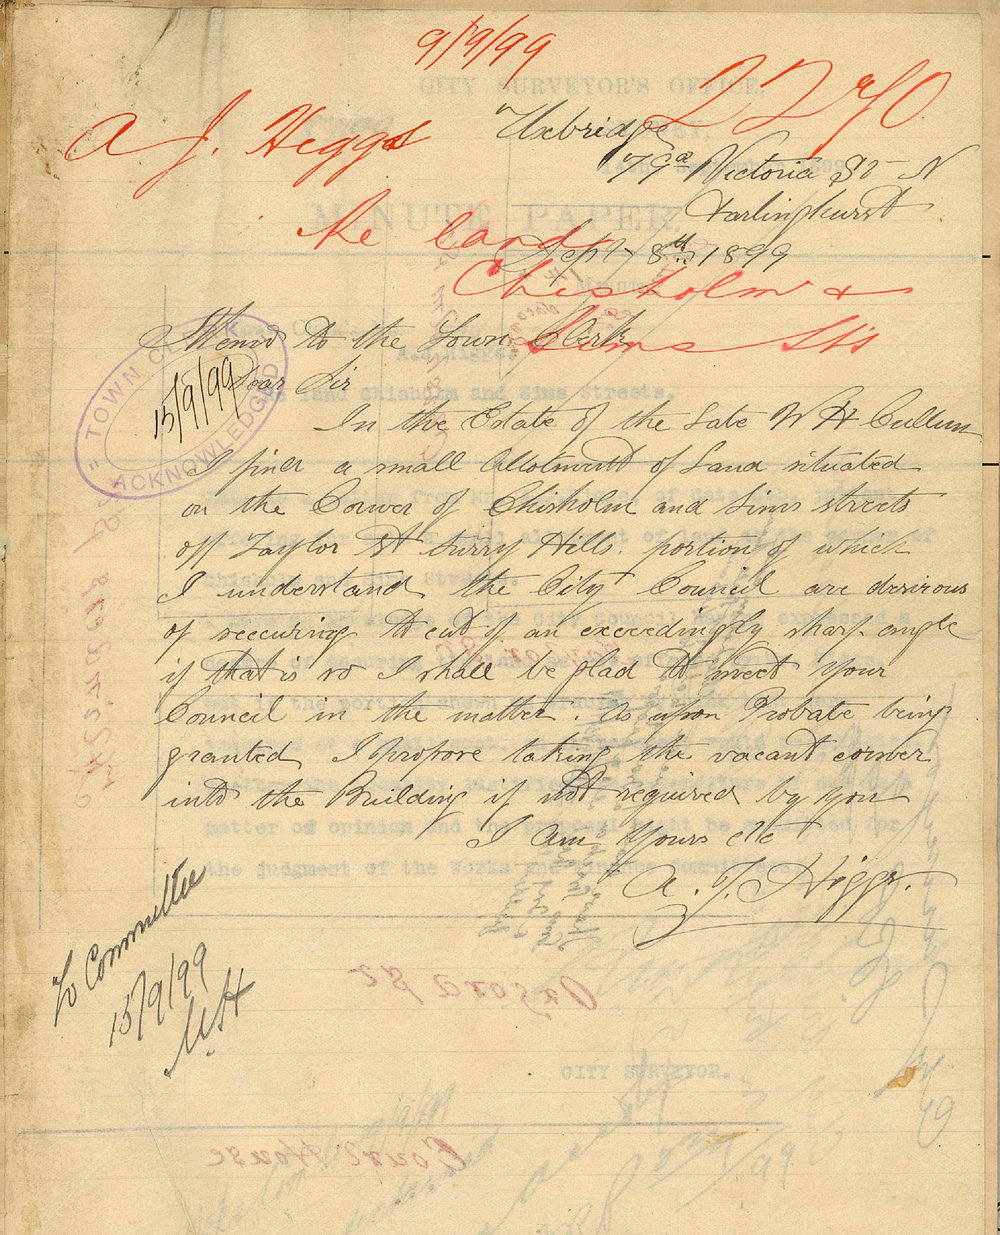 9/9/99
2270
A J. Higgs
Uxbridge
79a Victoria St N
Darlinghurst
Re land
Sept 8th 1899
Chisholm &
Sims Sts
Memo to the Town Clerk
TOWN CLERK
ACKNOWLEDGED
15/9/99
Dear Sir
In the Estate of the Late W H Cullum
I find a small allotment of Land situated
on the Corner of Chisholm and Sims streets
off Taylor St Surry Hills. portion of which
I understand the City Council are desirous
of securing to cut of an exceedingly sharp angle
if that is so I shall be glad to meet your
Council in the matter. As upon Probate being
granted I propose taking the vacant corner
into the Building if not required by you
I am Yours etc
A. J. Higgs.
To Committee
15/9/99
CITY SURVEYOR'S OFFICE,
MINUTE PAPER.
A.J. Higgs.
Re land Chisholm and Sims Streets.
matter of opinion and the
the judgment of the Works and Finance Committees.
CITY SURVEYOR.